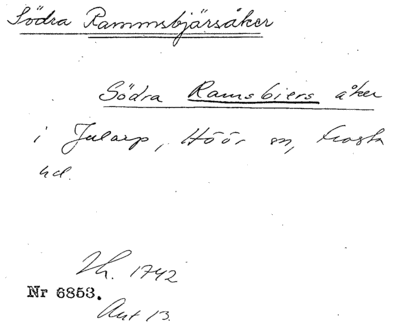 Södra Rammsbjärsåker
Södra Ramsbiers åker
i Jularp, Höör sn, Frosta
hd.
Lh. 1742
Nr 6853.
Akt 13.